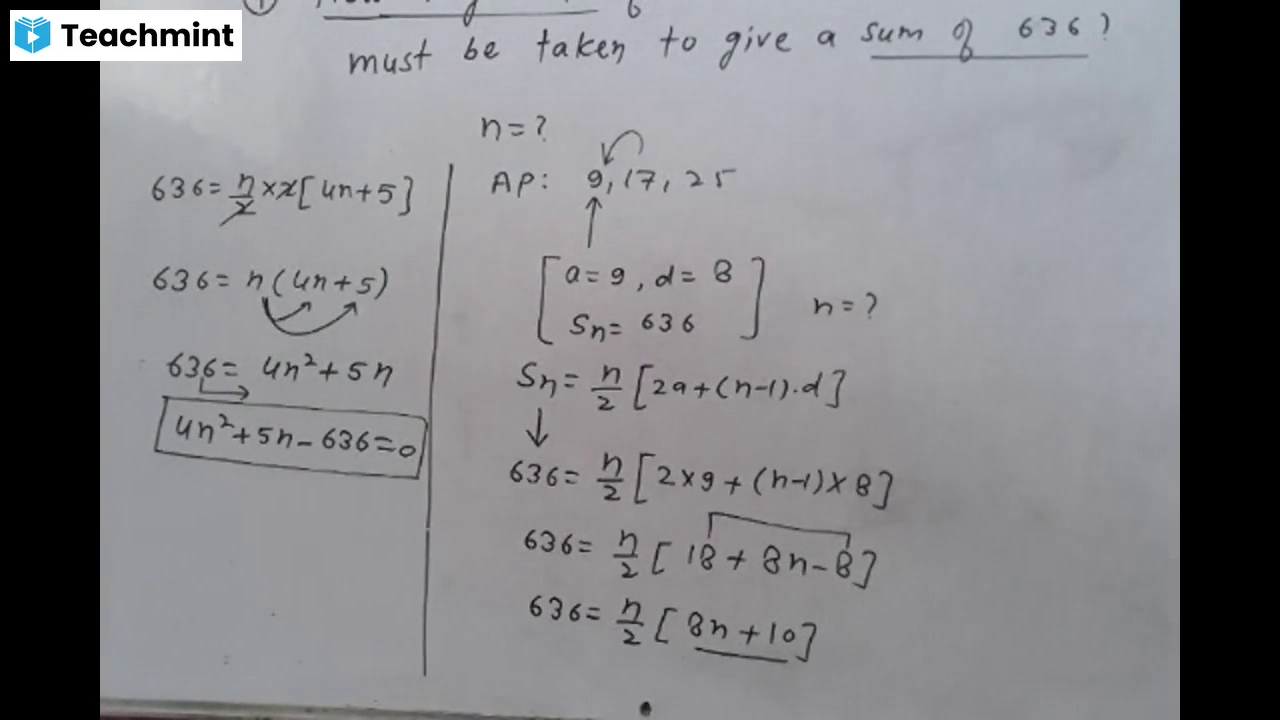 Teachmint
must be taken to give a sum of 636?
n=?
AP: 9, 17, 25
a=9, d=8
Sn= 636
n=?
Sn= n/2 [2a+(n-1).d]
636= n/2 [2×9+(n-1)×8]
636= n/2 [18+8n-8]
636= n/2 [8n+10]
636= n/2 ×2[4n+5]
636= n(4n+5)
636= 4n²+5n
4n²+5n-636=0